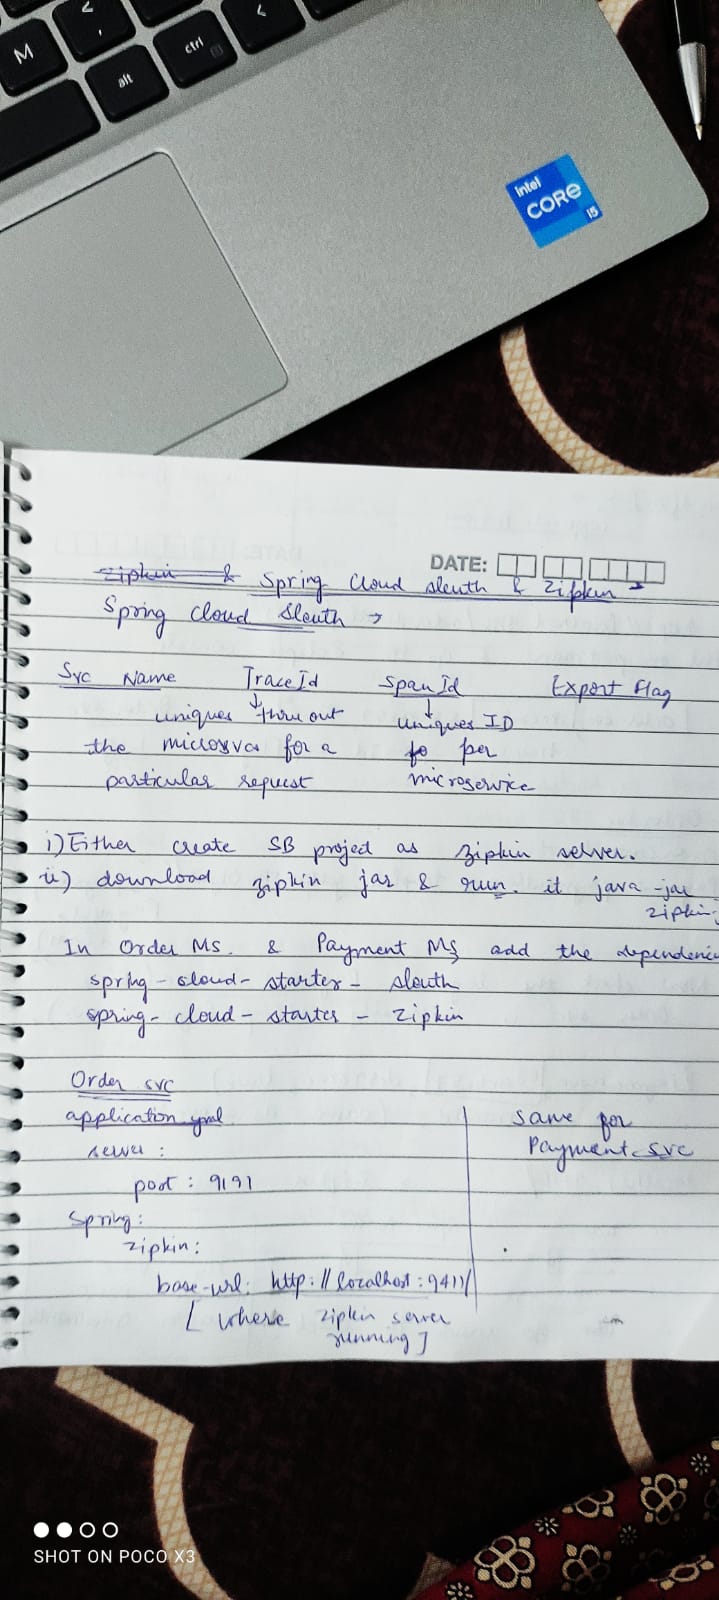 M
<
,
alt
ctrl
<
intel
CORE
i5
DATE:
zipkin & Spring Cloud sleuth & Zipkin →
Spring Cloud Sleuth →
Svc Name TraceId SpanId Export Flag
↓ ↓
uniques thru out uniques ID
the microsvcs for a fo per
particular request microservice
i) Either create SB project as zipkin server.
ii) download zipkin jar & run. it java -jar
zipkin
In Order MS. & Payment MS add the dependenci
spring-cloud-starter- sleuth
spring-cloud-starter - zipkin
Order svc
application.yml
server:
port: 9191
Spring:
zipkin:
base-url: http://localhost:9411/
[ where zipkin server
running ]
same for
Payment-svc
SHOT ON POCO X3